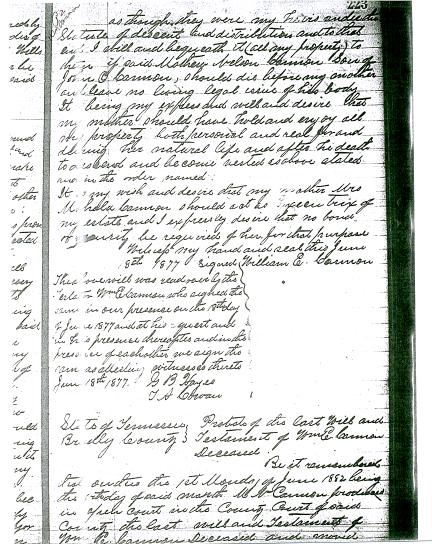 223
as though they were my heirs under the
Statute of descent and distributions and to that
end I will and bequeath it (all any property) to
if said Mathew Nelson Cannon Son of
John C Cannon, should die before my mother
and leave no living legal issue of his body
It being my express and will and desire that
my mother should have hold and enjoy all
my property both personal and real for and
during her natural life and after her death
to descend and become vested as above stated
and in the order named:
It is my wish and desire that my mother Mrs
Mahala Cannon should act as Executrix of
my estate and I expressly desire that no bond
or security be required of her for that purpose
Witness my hand and seal this June
18th 1877 Signed William E. Cannon
The above will was read over by the
Testator Wm E Cannon who signed the
same in our presence on the 18th day
of June 1877 and at his request and
in his presence and in the
presence of each other we sign the
same as attesting witnesses thereto
June 18th 1877. G B Hayes
T A Cowan
State of Tennessee Probate of the Last Will and
Bradley County Testament of Wm E Cannon
Deceased.
Be it remembered
that on the 1st Monday of June 1882 being
the day of said month M Cannon produced
in open Court in the County Court of said
County the last will and Testament of
Wm E Cannon Deceased and moved